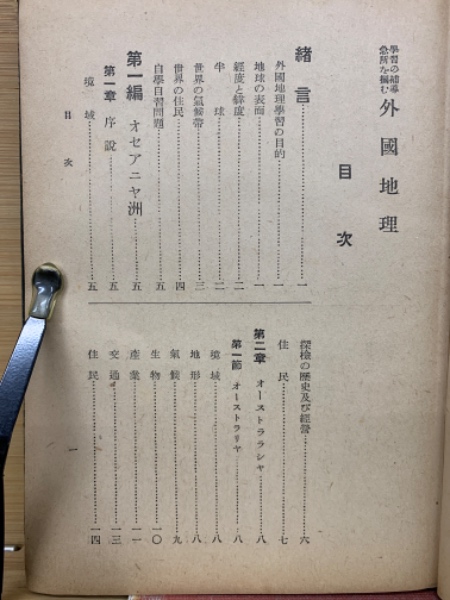 學習の補導
急所を摑む
外國地理
目次
緒言……一
外國地理學習の目的……一
地球の表面……一
經度と緯度……二
半球……二
世界の氣候帶……三
世界の住民……四
自學自習問題……五
第一編 オセアニヤ洲……五
第一章 序說……五
境域……五
探檢の歷史及び經營……六
住民……七
第二章 オーストララシヤ……八
第一節 オーストラリヤ……八
境域……八
地形……八
氣候……九
生物……一〇
產業……一一
交通……一三
住民……一四
目次
一